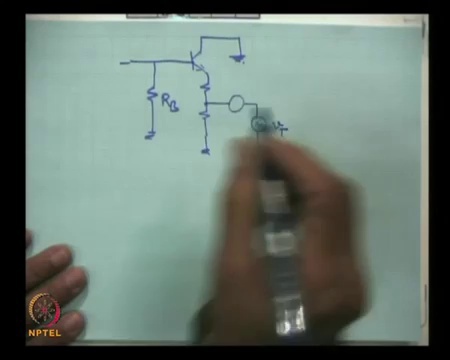 R_B
v_T
NPTEL